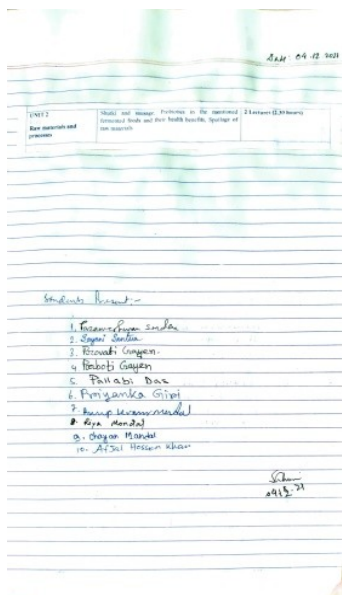 Date: 04.12.2021
UNIT 2
Raw materials and processes
Shidki and sausage. Probiotics in the mentioned
fermented foods and their health benefits, Spoilage of
raw materials
2 Lectures (2.30 hours)
Students Present:-
1. Parameshwar
2. Sayani Santra
3. Parovati Gayen.
4. Parboti Gayen
5. Pallabi Das
6. Priyanka Giri
7. Anup Kumar Mondal
8. Riya Mondal
9. Chayan Mandal
10. Afjal Hossen Khan
04.12.21